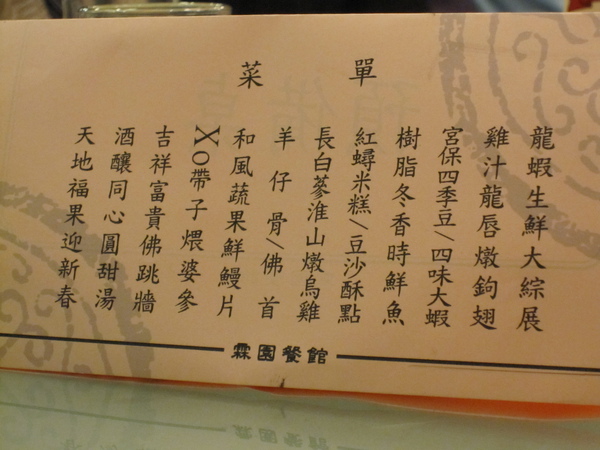 菜單
龍蝦生鮮大綜展
雞汁龍唇燉鉤翅
宮保四季豆/四味大蝦
樹脂冬香時鮮魚
紅蟳米糕/豆沙酥點
長白蔘淮山燉烏雞
羊仔骨/佛首
和風蔬果鮮鰻片
XO帶子煨婆參
吉祥富貴佛跳牆
酒釀同心圓甜湯
天地福果迎新春
霖園餐館